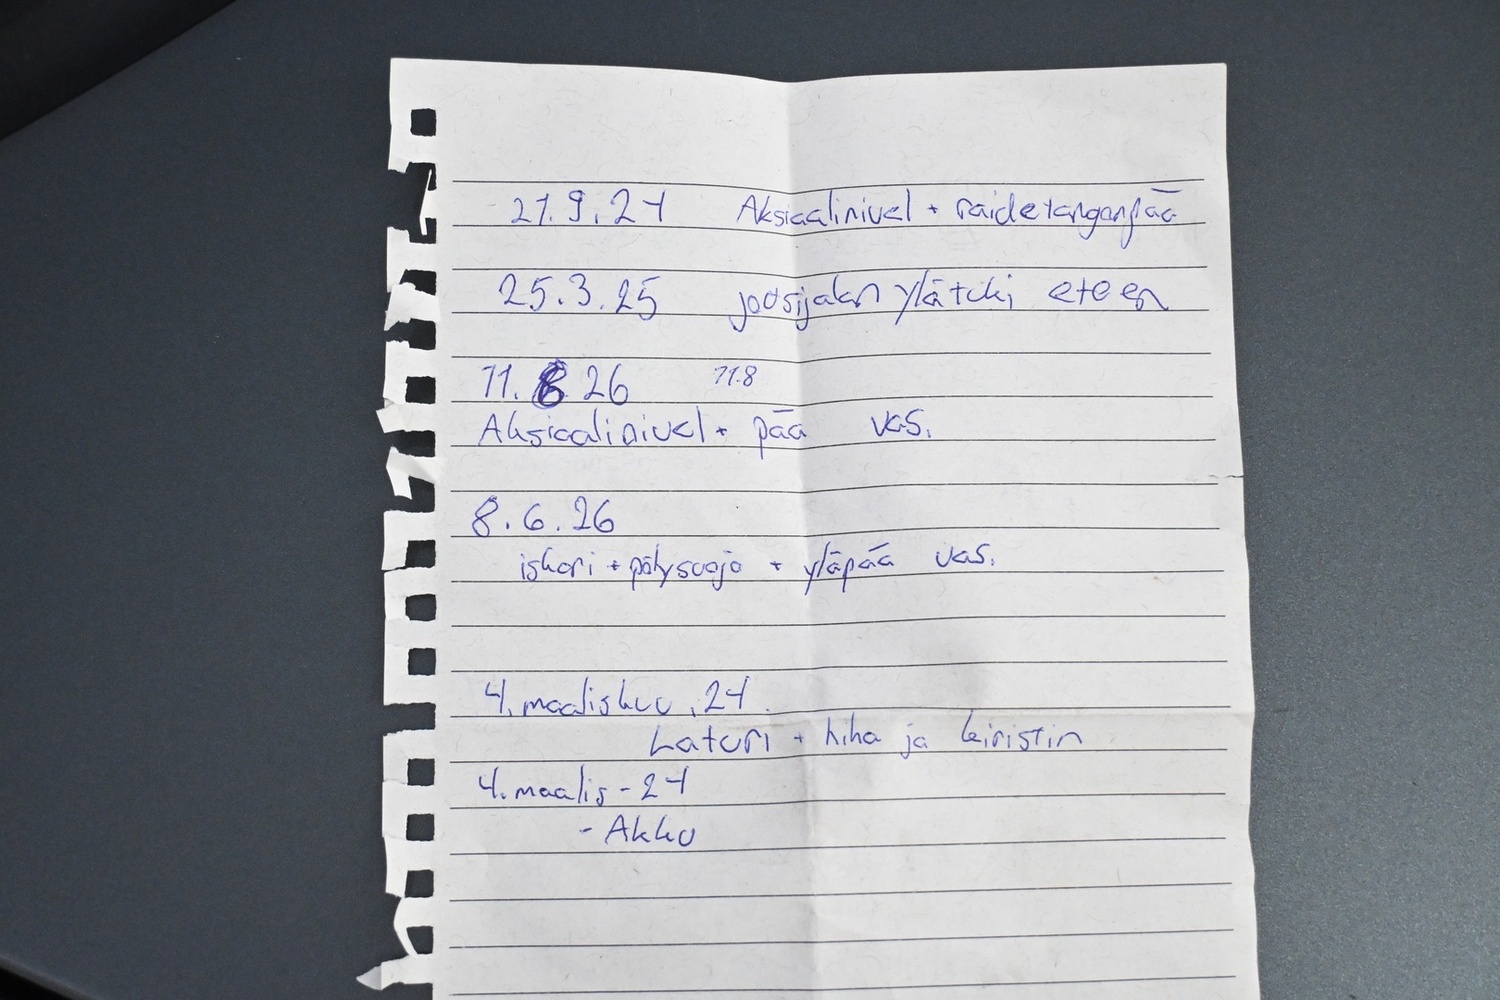 21.9.24 Aksiaalinivel + raidetanganpää
25.3.25 jousijalan ylätuki eteen
11.8 26 11.8
Aksiaalinivel + pää vas.
8.6.26
iskari + pölysuoja + yläpää vas.
4. maaliskuu .24
Laturi + hiha ja kiristin
4. maalis - 24
- Akku